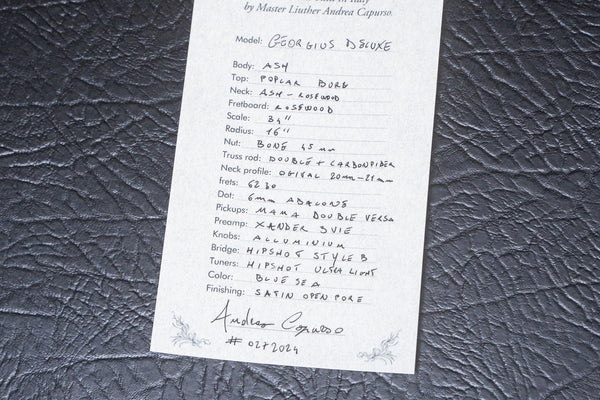 in Italy
by Master Liuther Andrea Capurso.
Model: GEORGIUS DELUXE
Body: ASH
Top: POPLAR BURG
Neck: ASH - ROSEWOOD
Fretboard: ROSEWOOD
Scale: 34"
Radius: 16"
Nut: BONE 45 mm
Truss rod: DOUBLE + CARBONFIBER
Neck profile: OGIVAL 20mm-21mm
frets: 6230
Dot: 6mm ABALONE
Pickups: MAMA DOUBLE VERSA
Preamp: XANDER 3VIE
Knobs: ALLUMINIUM
Bridge: HIPSHOT STYLE B
Tuners: HIPSHOT ULTRA LIGHT
Color: BLUE SEA
Finishing: SATIN OPEN PORE
Andrea Capurso
# 0272024